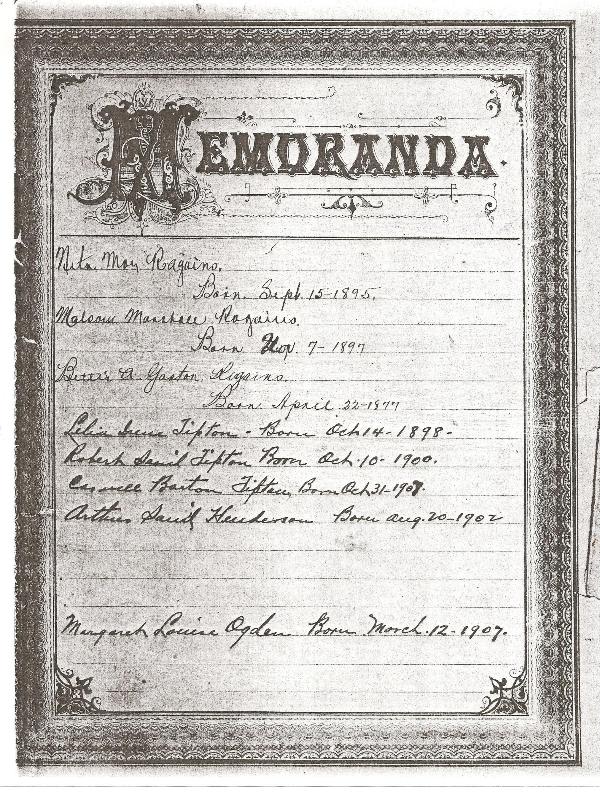 MEMORANDA.
Nita May Ragains.
Born. Sept. 15-1895.
Marshall Ragains.
Born Nov. 7-1897
Gaston Rigains.
Born April 22-1877
Lelia Irene Tipton - Born Oct 14-1898-
Robert David Tipton Born Oct. 10-1900.
Barton Tipton Born Oct 31-1907.
Arthur David Henderson Born Aug. 20-1902
Margaret Louise Ogden Born March. 12-1907.